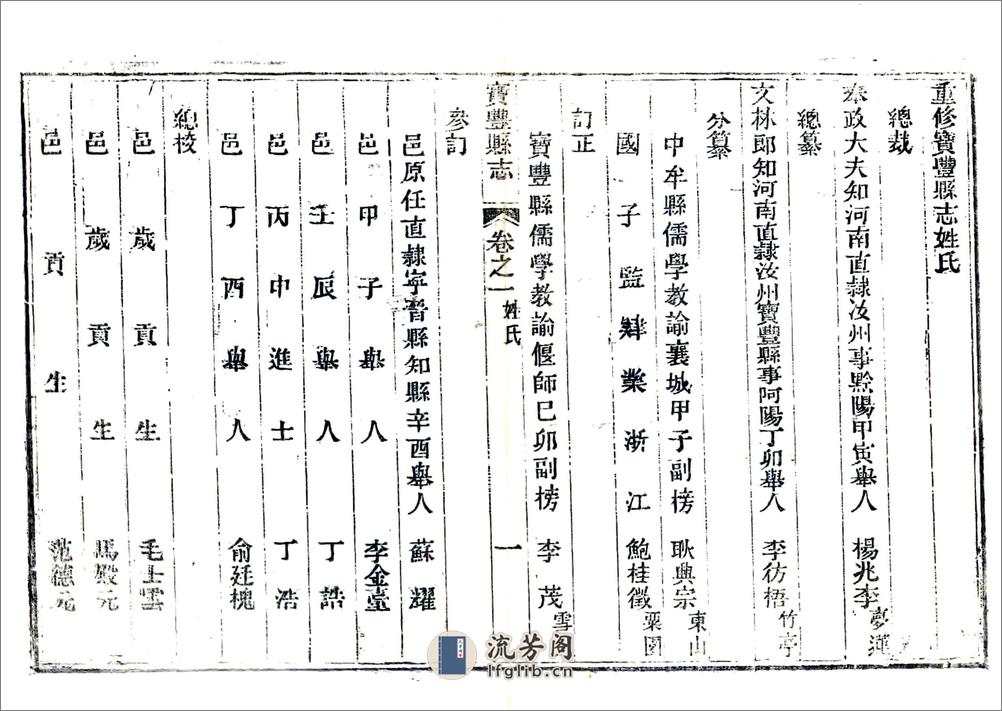 重修寶豐縣志姓氏
總裁
奉政大夫知河南直隸汝州事黔陽甲寅舉人 楊兆李 夢蓮
總纂
文林郎知河南直隸汝州寶豐縣事阿陽丁卯舉人 李彷梧 竹亭
分纂
中牟縣儒學教諭襄城甲子副榜 耿興宗 東山
國子監肄業浙江 鮑桂徵 粟園
訂正
寶豐縣儒學教諭偃師己卯副榜 李茂 雪
寶豐縣志 卷之一 姓氏 一
參訂
邑原任直隸寧晉縣知縣辛酉舉人 蘇耀
邑甲子舉人 李金臺
邑壬辰舉人 丁誥
邑丙申進士 丁浩
邑丁酉舉人 俞廷槐
總校
邑歲貢生 毛士雲
邑歲貢生 馬殿元
邑貢生 范德元
流芳阁
lfglib.cn